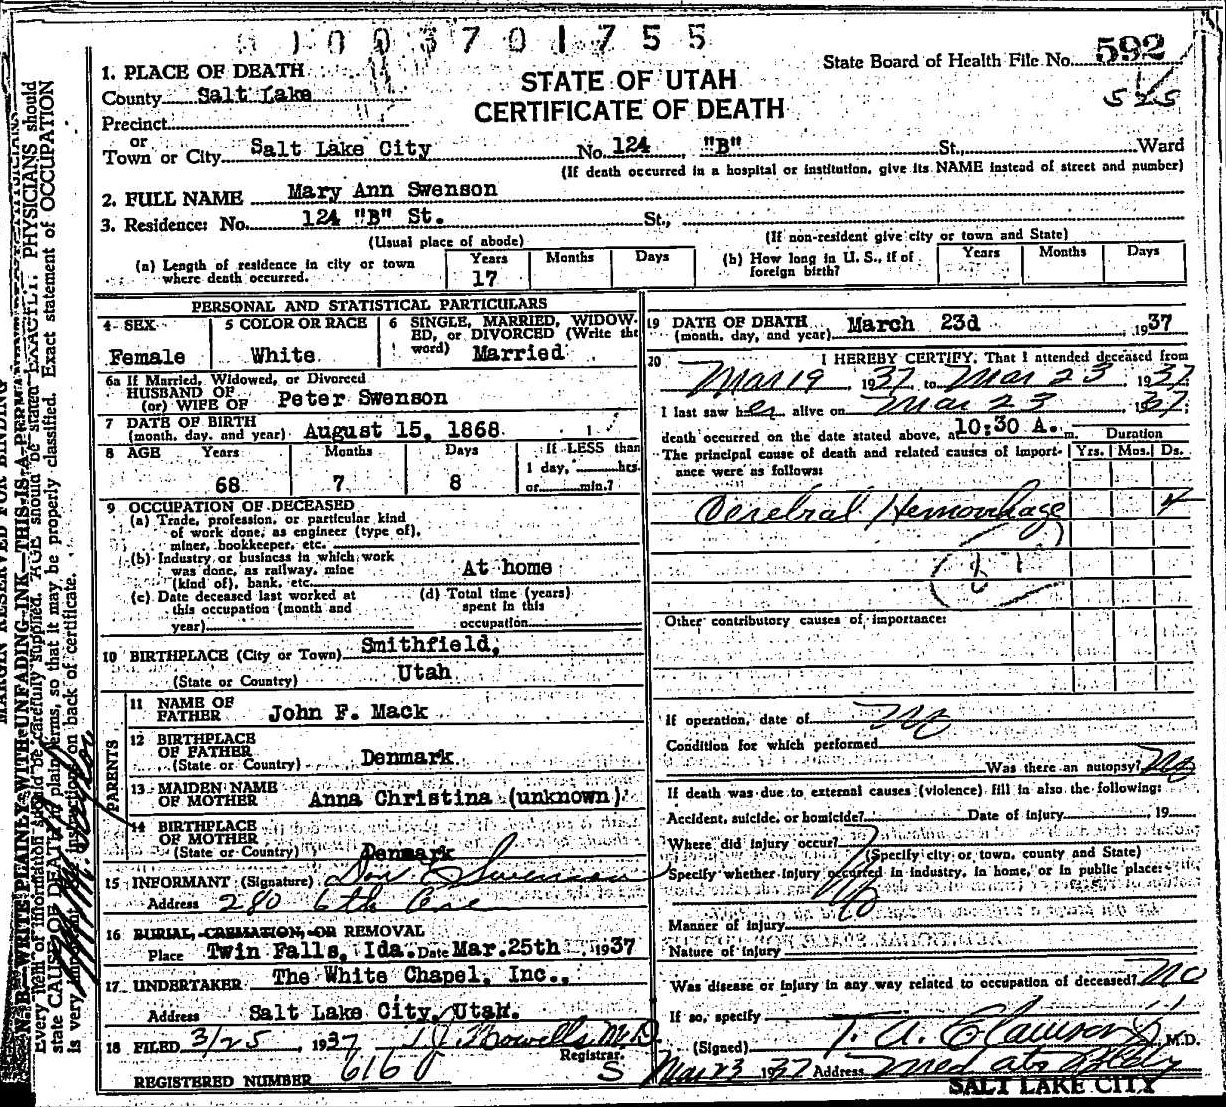 0 1 0 0 3 7 0 1 7 5 5
State Board of Health File No. 592
525
STATE OF UTAH
CERTIFICATE OF DEATH
1. PLACE OF DEATH
County Salt Lake
Precinct
or
Town or City Salt Lake City No. 124 "B" St., Ward
(If death occurred in a hospital or institution, give its NAME instead of street and number)
2. FULL NAME Mary Ann Swenson
3. Residence: No. 124 "B" St. St.,
(Usual place of abode) (If non-resident give city or town and State)
(a) Length of residence in city or town where death occurred. Years 17 Months Days
(b) How long in U. S., if of foreign birth? Years Months Days
PERSONAL AND STATISTICAL PARTICULARS
4 SEX Female
5 COLOR OR RACE White
6 SINGLE, MARRIED, WIDOWED, or DIVORCED (Write the word) Married
6a If Married, Widowed, or Divorced
HUSBAND OF
(or) WIFE OF Peter Swenson
7 DATE OF BIRTH
(month, day, and year) August 15, 1868.
8 AGE Years 68 Months 7 Days 8
If LESS than
1 day, hrs.
or min.?
9 OCCUPATION OF DECEASED
(a) Trade, profession, or particular kind
of work done, as engineer (type of),
miner, bookkeeper, etc.
(b) Industry or business in which work
was done, as railway, mine At home
(kind of), bank, etc.
(c) Date deceased last worked at
this occupation (month and
year)
(d) Total time (years)
spent in this
occupation
10 BIRTHPLACE (City or Town) Smithfield,
(State or Country) Utah
PARENTS
11 NAME OF
FATHER John F. Mack
12 BIRTHPLACE
OF FATHER
(State or Country) Denmark
13 MAIDEN NAME
OF MOTHER Anna Christina (unknown)
14 BIRTHPLACE
OF MOTHER
(State or Country) Denmark
15 INFORMANT (Signature) Don Swenson
Address 280 6th Ave
16 BURIAL, CREMATION, OR REMOVAL
Place Twin Falls, Ida. Date Mar. 25th, 1937
17 UNDERTAKER The White Chapel, Inc.,
Address Salt Lake City, Utah.
18 FILED 3/25, 1937 M.D.
Registrar.
REGISTERED NUMBER 616 S
19 DATE OF DEATH
(month, day, and year) March 23d 1937
20 I HEREBY CERTIFY, That I attended deceased from
Mar 19, 1937 to Mar 23, 1937
I last saw her alive on Mar 23 1937
death occurred on the date stated above, at 10:30 A. m. Duration
The principal cause of death and related causes of importance were as follows: Yrs. Mos. Ds.
Cerebral Hemorrhage 4
Other contributory causes of importance:
If operation, date of No
Condition for which performed
Was there an autopsy? No
If death was due to external causes (violence) fill in also the following:
Accident, suicide, or homicide? Date of injury , 19
Where did injury occur?
(Specify city or town, county and State)
Specify whether injury occurred in industry, in home, or in public place:
No
Manner of injury
Nature of injury
Was disease or injury in any way related to occupation of deceased? No
If so, specify
(Signed) T. A. Clawson Jr, M.D.
Mar 23 1937 Address Med Arts Bldg
SALT LAKE CITY
MARGIN RESERVED FOR BINDING
N. B.—WRITE PLAINLY WITH UNFADING INK—THIS IS A PERM
Every item of information should be carefully supplied. AGE should be stated EXACTLY. PHYSICIANS should
state CAUSE OF DEATH in plain terms, so that it may be properly classified. Exact statement of OCCUPATION
is very important. See instructions on back of certificate.